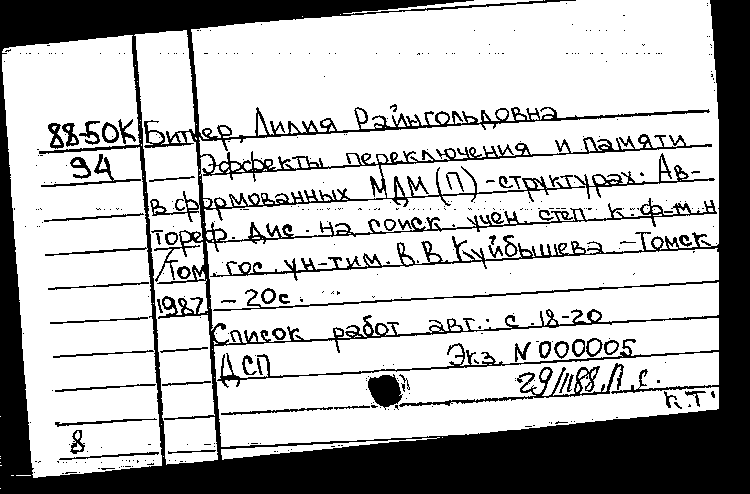 88-50К Битнер, Лилия Райнгольдовна
94 Эффекты переключения и памяти
в формованных МДМ(П)-структурах: Ав-
тореф. дис. на соиск. учен. степ. к. ф-м.н
/Том. гос. ун-т им. В.В. Куйбышева. - Томск,
1987 - 20с.
Список работ авт.: с. 18-20
ДСП Экз. N 000005
К.Т.
8